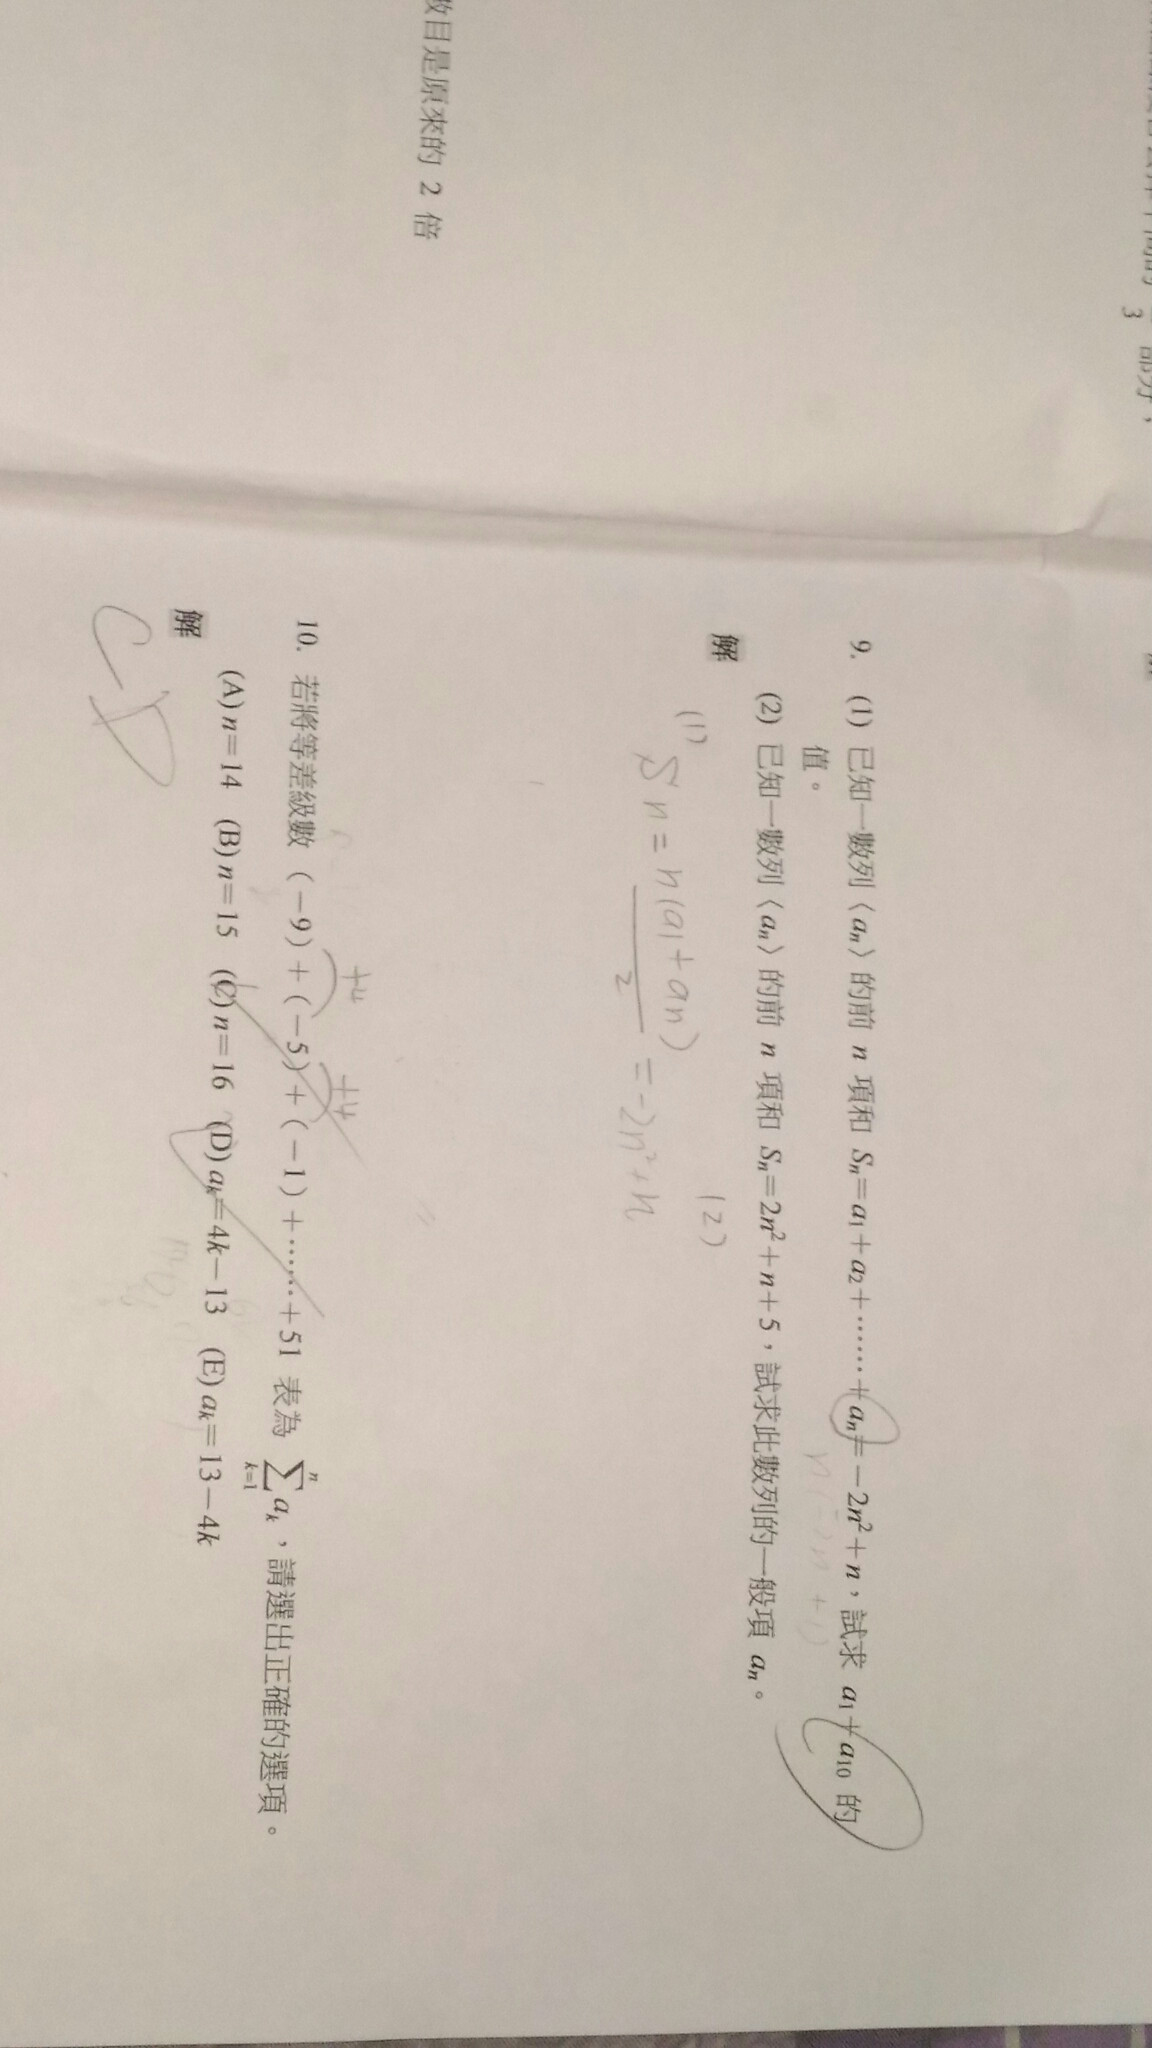 3 部分，
數目是原來的 2 倍
9. (1) 已知一數列〈aₙ〉的前 n 項和 Sₙ=a₁+a₂+……+aₙ=−2n²+n，試求 a₁+a₁₀ 的
值。
n(−2n+1)
(2) 已知一數列〈aₙ〉的前 n 項和 Sₙ=2n²+n+5，試求此數列的一般項 aₙ。
解
(1)
(2)
Sn = n(a1+an)/2 = −2n²+n
+4 +4
10. 若將等差級數（−9）+（−5）+（−1）+……+51 表為 ∑ₖ₌₁ⁿ aₖ，請選出正確的選項。
(A) n=14 (B) n=15 (C) n=16 (D) aₖ=4k−13 (E) aₖ=13−4k
解
CD